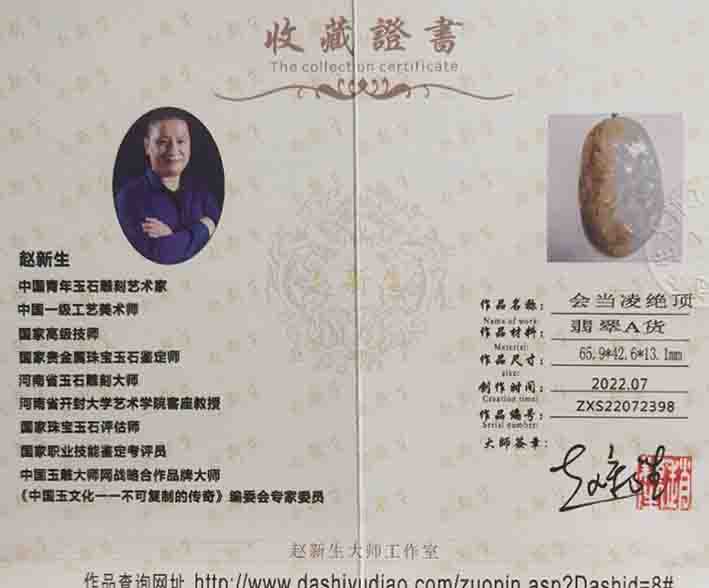 收藏證書
The collection certificate
赵新生
中国青年玉石雕刻艺术家
中国一级工艺美术师
国家高级技师
国家贵金属珠宝玉石鉴定师
河南省玉石雕刻大师
河南省开封大学艺术学院客座教授
国家珠宝玉石评估师
国家职业技能鉴定考评员
中国玉雕大师网战略合作品牌大师
《中国玉文化一一不可复制的传奇》编委会专家委员
作品名称： 会当凌绝顶
Name of work:
作品材料： 翡翠A货
Material:
作品尺寸： 65.9*42.6*13.1mm
size:
制作时间： 2022.07
Creation time:
作品编号： ZXS22072398
Serial number:
大师签章：
赵新生大师工作室
作品查询网址 http://www.dashiyudiao.com/zuopin.asp?Dashid=8#